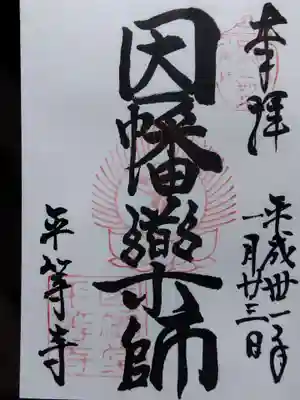 奉拝
平成丗一年
一月廿三日
因幡薬師
平等寺